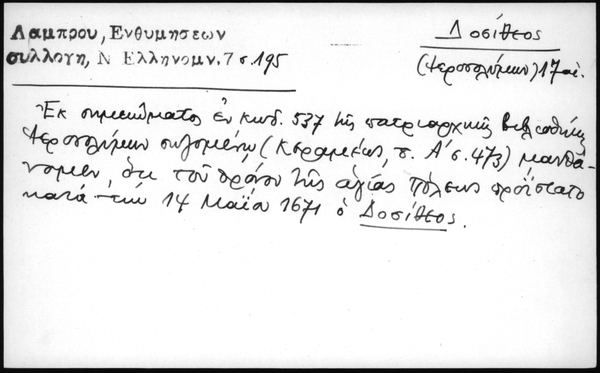 Λαμπρου, Ενθυμησεων
συλλογη, Ν Ελληνομν. 7 σ. 195
Δοσίθεος
(Ιεροσολύμων) 17 αἰ.
Ἐκ σημειώματος ἐν κώδ. 537 τῆς πατριαρχικῆς βιβλιοθήκης
Ἱεροσολύμων σῳζομένου (Κεραμέως, τ. Α' σ. 473) μανθά-
νομεν, ὅτι τοῦ θρόνου τῆς ἁγίας πόλεως προΐστατο
κατὰ τὴν 14 Μαΐου 1671 ὁ Δοσίθεος.